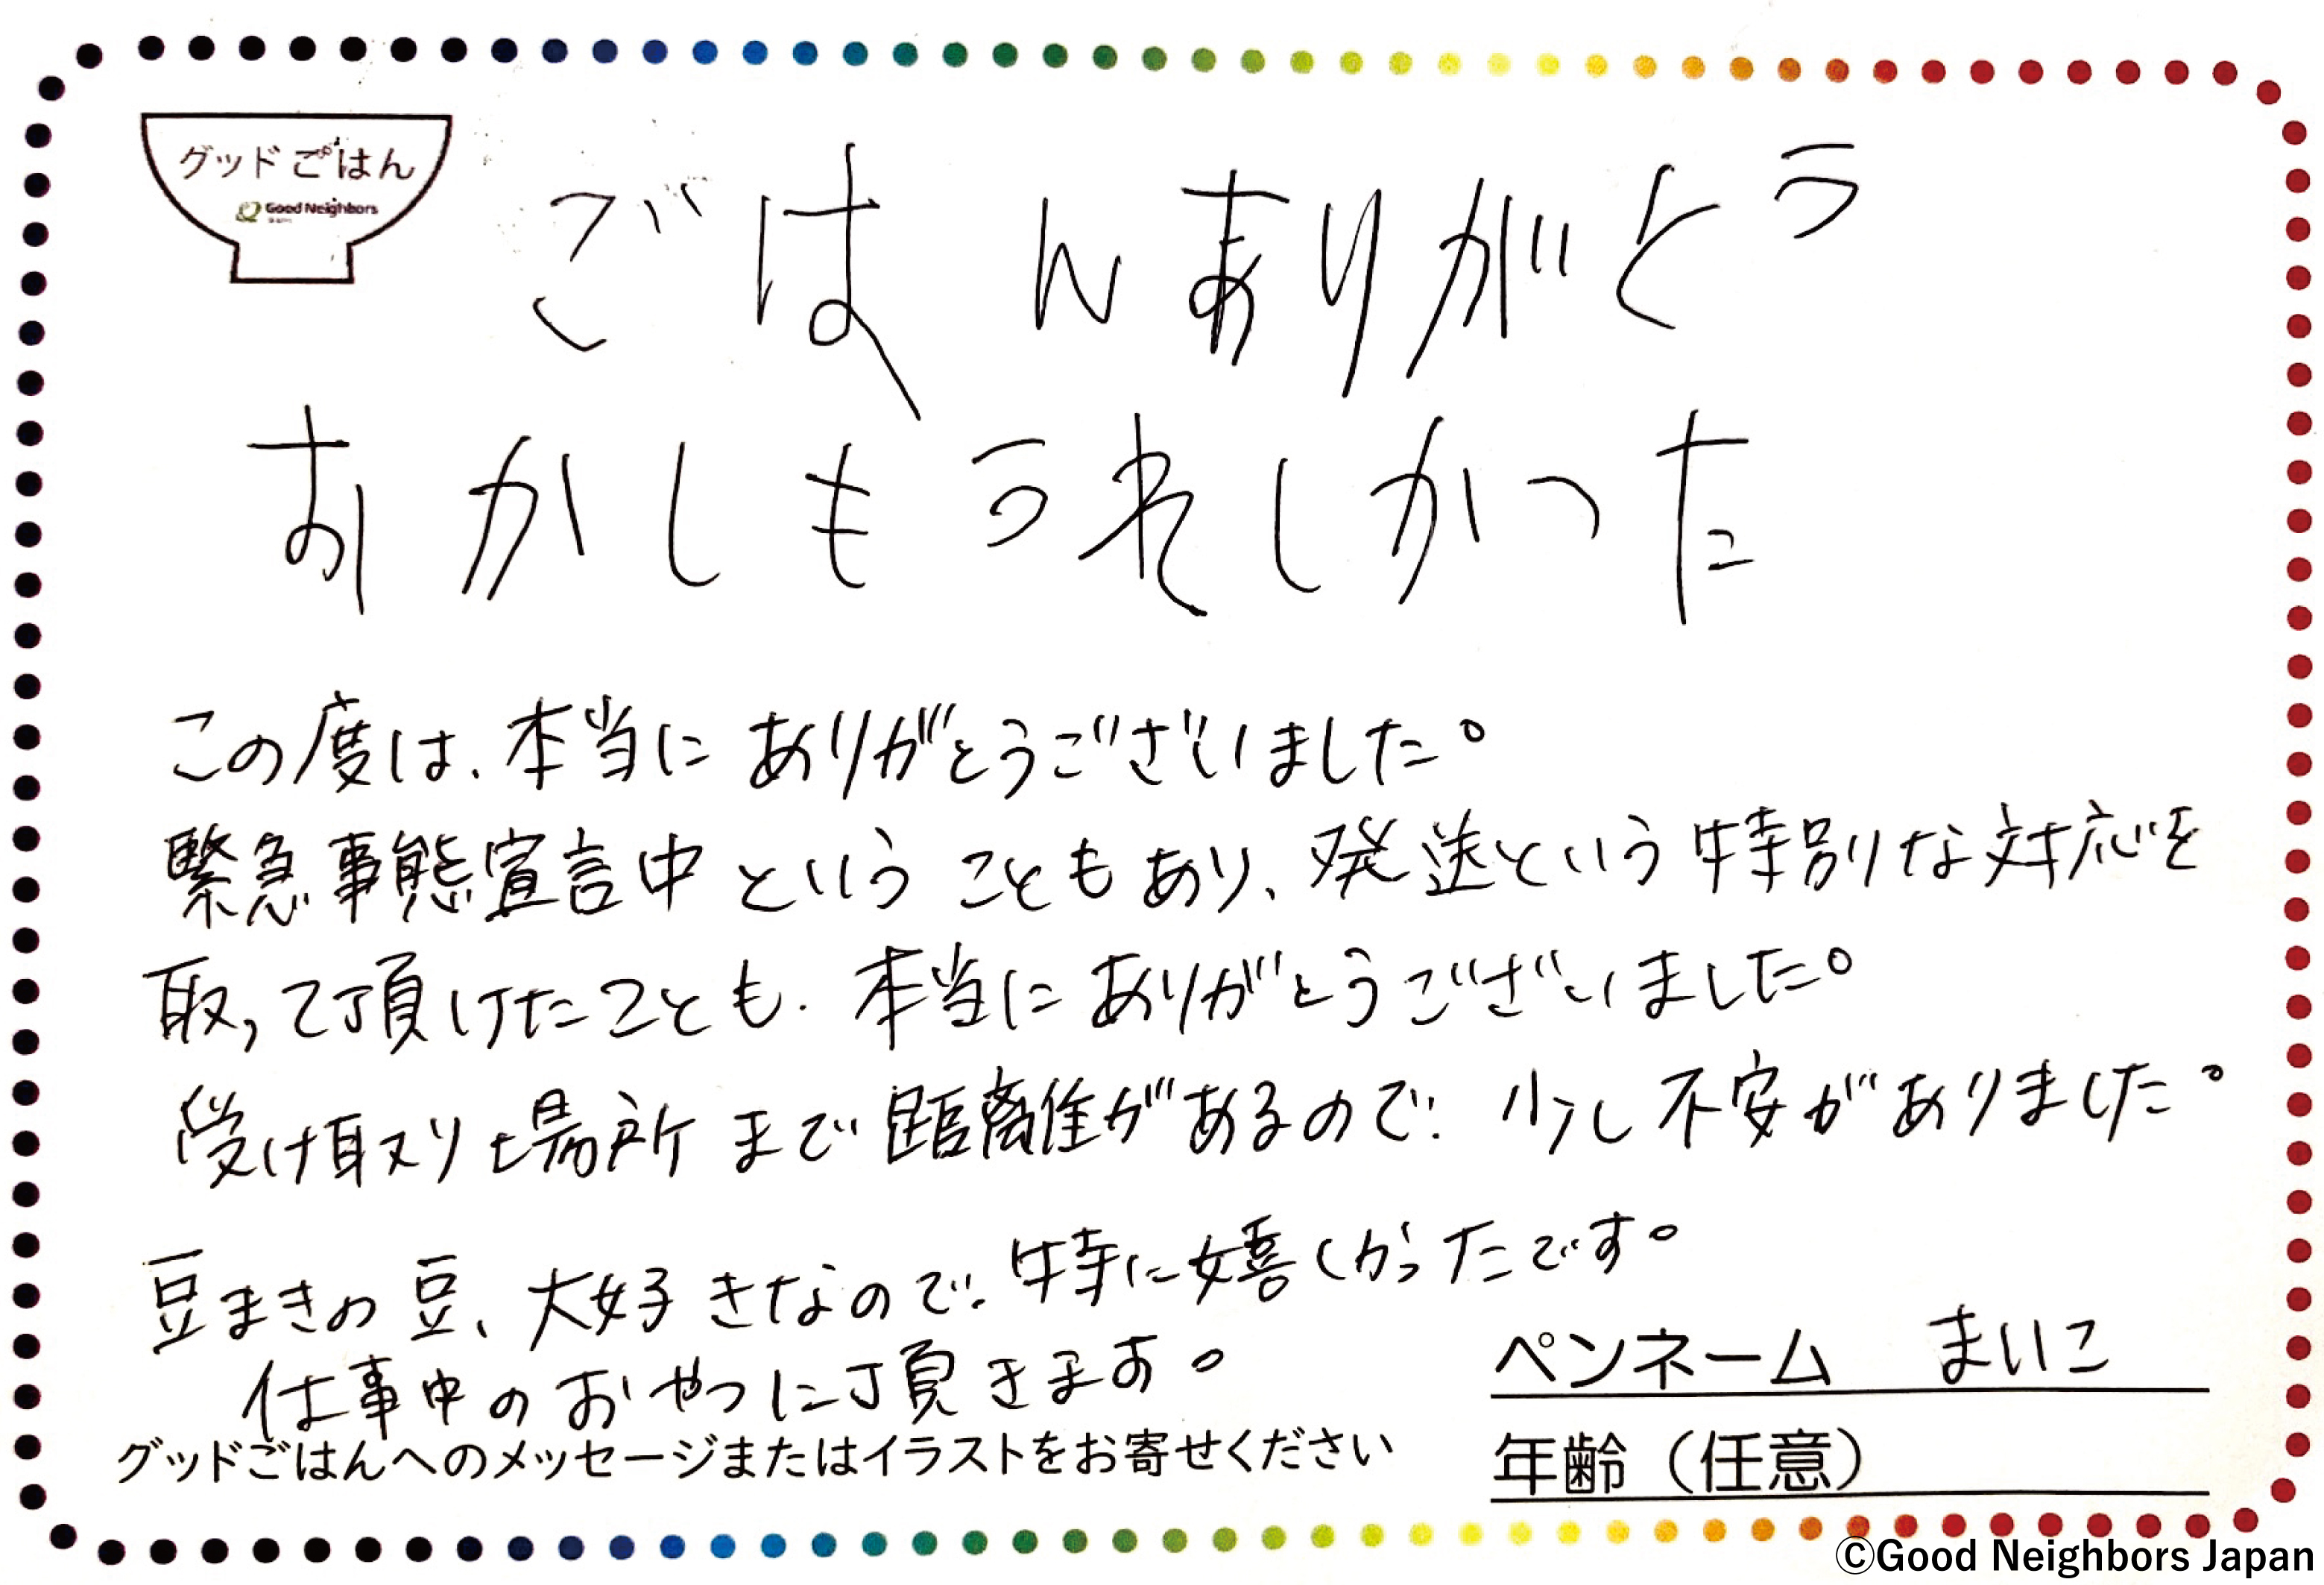 グッドごはん
Good Neighbors
ごはんありがとう
おかしもうれしかった
この度は、本当にありがとうございました。
緊急事態宣言中ということもあり、発送という特別な対応を
取って頂けたことも、本当にありがとうございました。
受け取り場所まで距離があるので、少し不安がありました。
豆まきの豆、大好きなので、特に嬉しかったです。
仕事中のおやつに頂きます。
ペンネーム まいこ
グッドごはんへのメッセージまたはイラストをお寄せください
年齢（任意）
©Good Neighbors Japan